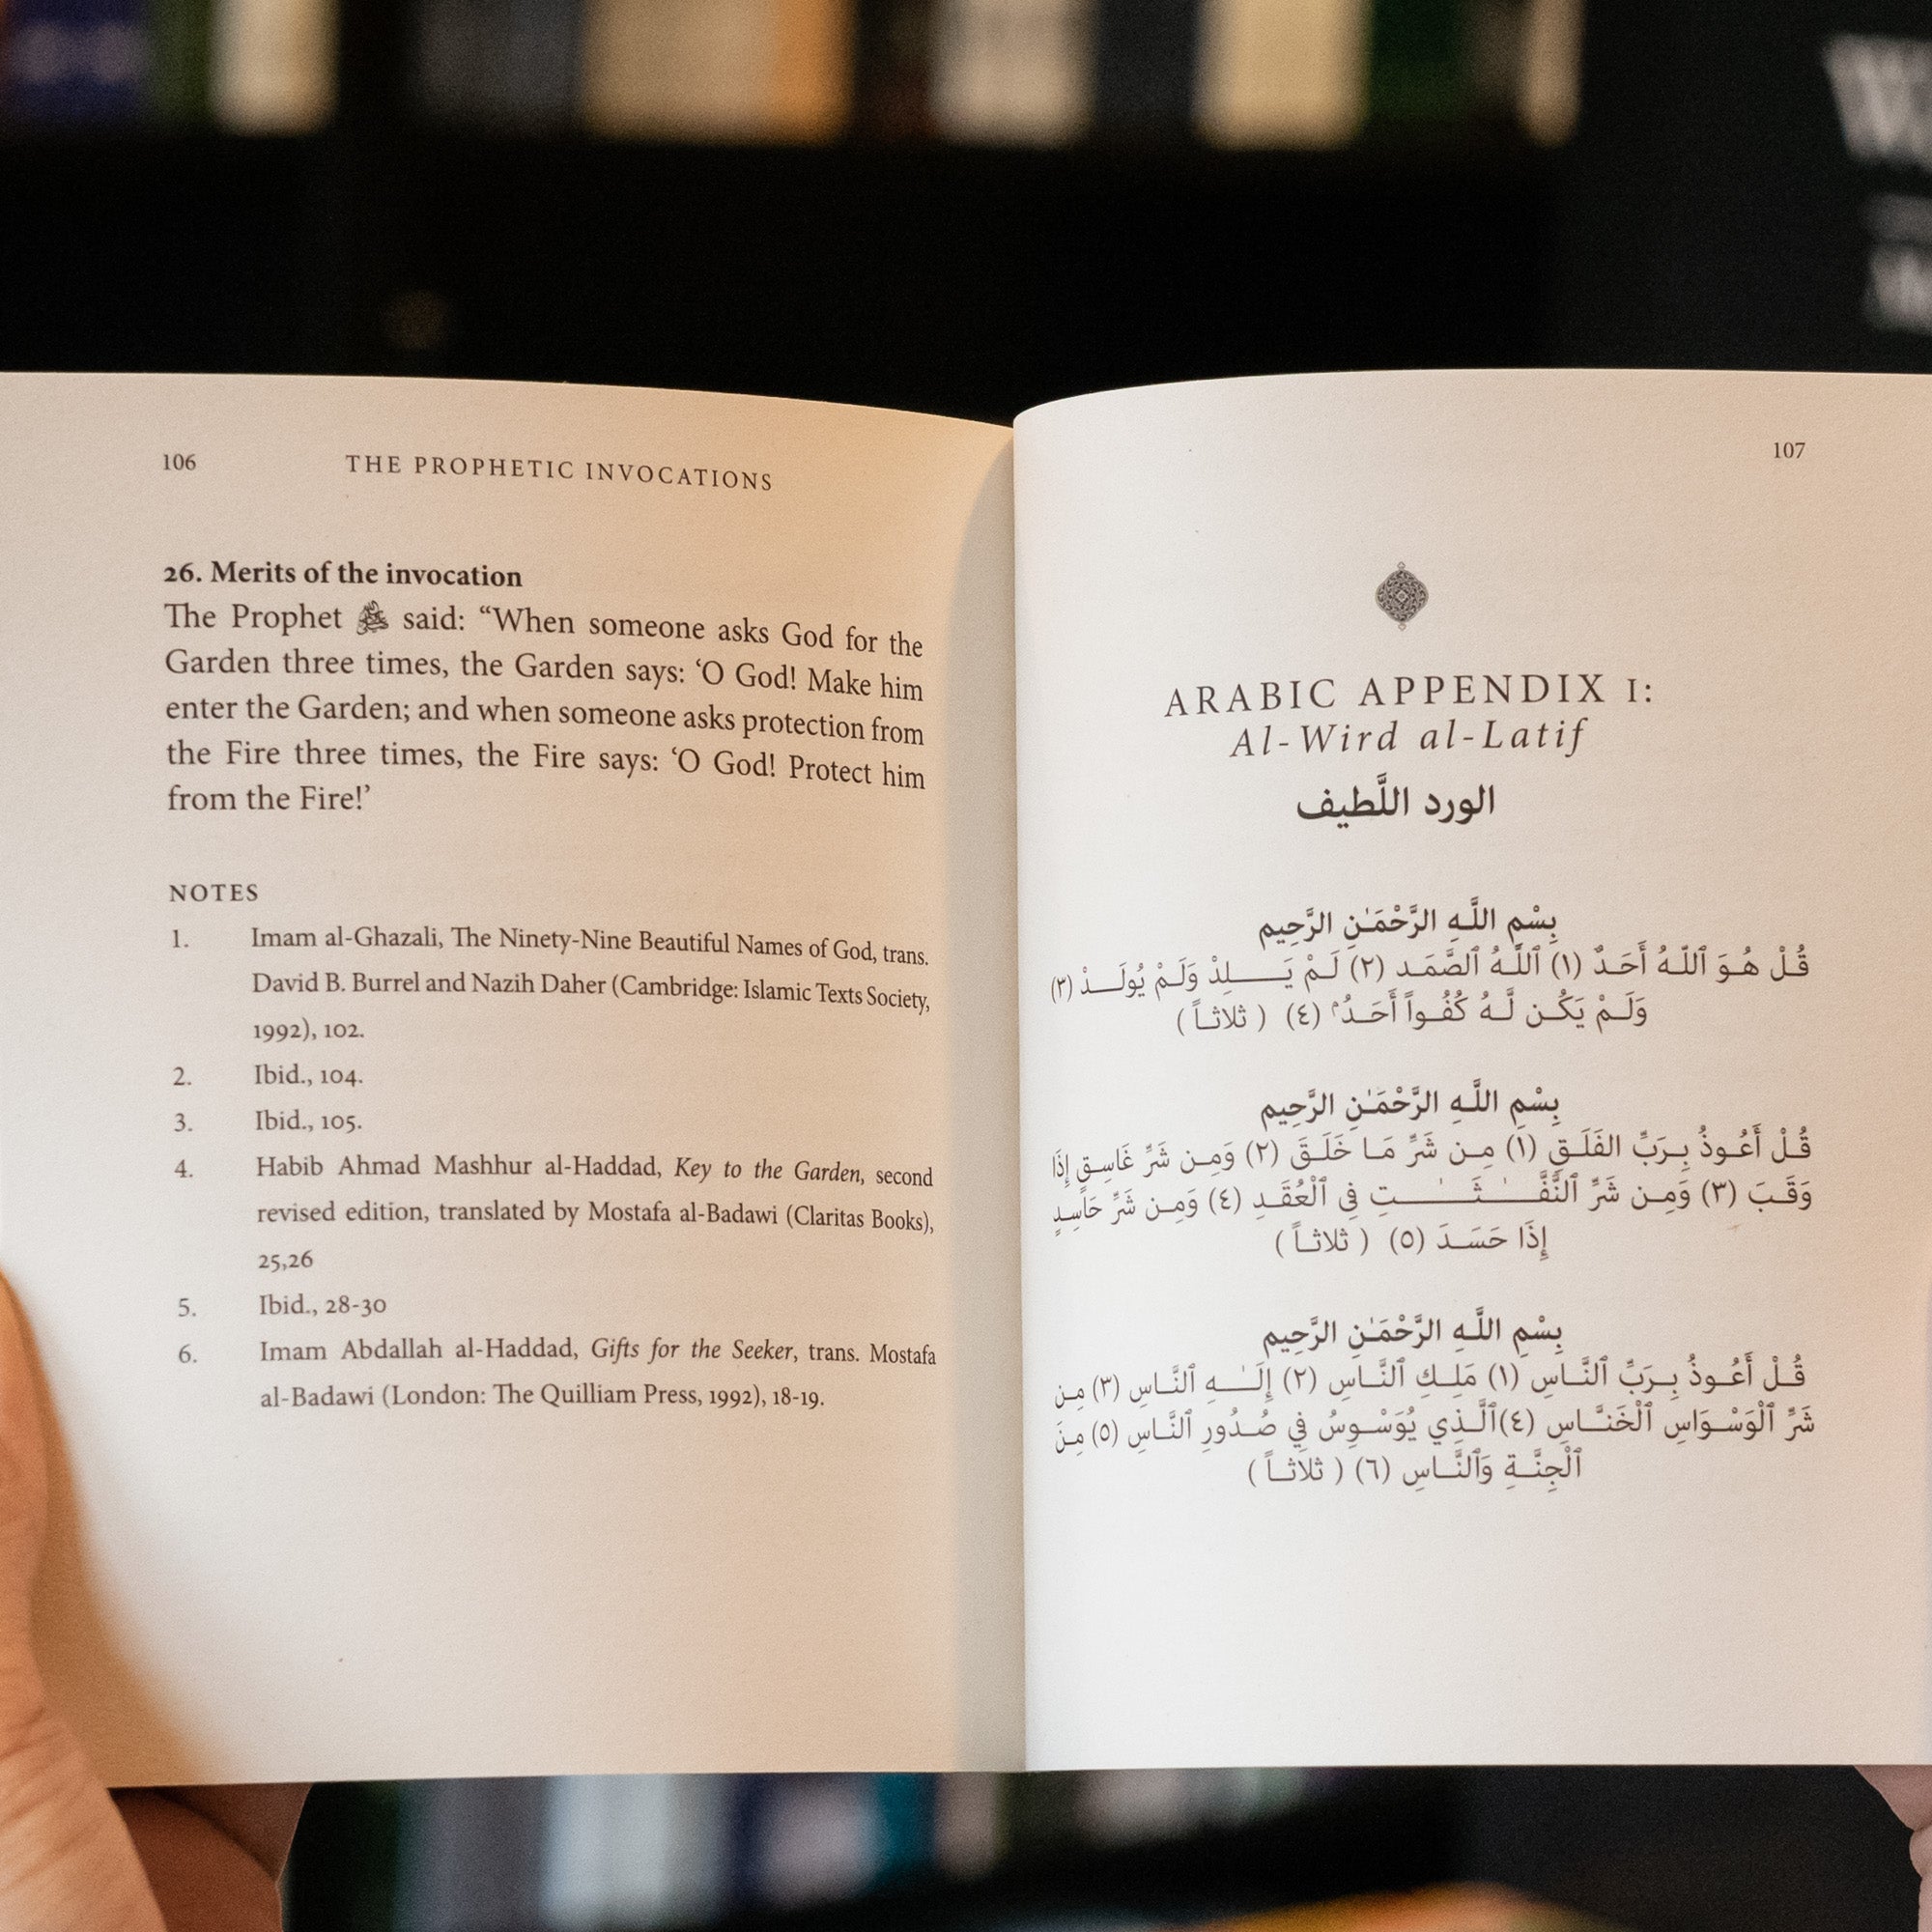 106
THE PROPHETIC INVOCATIONS
26. Merits of the invocation
The Prophet ﷺ said: “When someone asks God for the
Garden three times, the Garden says: ‘O God! Make him
enter the Garden; and when someone asks protection from
the Fire three times, the Fire says: ‘O God! Protect him
from the Fire!’
NOTES
1. Imam al-Ghazali, The Ninety-Nine Beautiful Names of God, trans.
David B. Burrel and Nazih Daher (Cambridge: Islamic Texts Society,
1992), 102.
2. Ibid., 104.
3. Ibid., 105.
4. Habib Ahmad Mashhur al-Haddad, Key to the Garden, second
revised edition, translated by Mostafa al-Badawi (Claritas Books),
25,26
5. Ibid., 28-30
6. Imam Abdallah al-Haddad, Gifts for the Seeker, trans. Mostafa
al-Badawi (London: The Quilliam Press, 1992), 18-19.
107
ARABIC APPENDIX I:
Al-Wird al-Latif
الورد اللَّطيف
بِسْمِ اللَّـهِ الرَّحْمَـٰنِ الرَّحِيمِ
قُـلْ هُـوَ ٱللَّـهُ أَحَـدٌ (١) ٱللَّـهُ ٱلصَّمَـد (٢) لَـمْ يَـــلِدْ وَلَـمْ يُولَــدْ (٣)
وَلَـمْ يَكُـن لَّـهُ كُفُـواً أَحَـدُۢ (٤) ( ثلاثـاً )
بِسْمِ اللَّـهِ الرَّحْمَـٰنِ الرَّحِيمِ
قُـلْ أَعُـوذُ بِـرَبِّ الفَلَـقِ (١) مِـن شَرِّ مَـا خَلَـقَ (٢) وَمِـن شَرِّ غَاسِـقٍ إِذَا
وَقَـبَ (٣) وَمِـن شَرِّ ٱلنَّفَّـٰـثَـٰـتِ فِى ٱلْعُقَـدِ (٤) وَمِـن شَرِّ حَاسِـدٍ
إِذَا حَسَـدَ (٥) ( ثلاثـاً )
بِسْمِ اللَّـهِ الرَّحْمَـٰنِ الرَّحِيمِ
قُـلْ أَعُـوذُ بِـرَبِّ ٱلنَّـاسِ (١) مَلِـكِ ٱلنَّـاسِ (٢) إِلَـٰـهِ ٱلنَّـاسِ (٣) مِـن
شَرِّ ٱلْوَسْـوَاسِ ٱلْخَنَّـاسِ (٤) ٱلَّـذِي يُوَسْـوِسُ فِي صُـدُورِ ٱلنَّـاسِ (٥) مِـنَ
ٱلْجِنَّـةِ وَٱلنَّـاسِ (٦) ( ثلاثـاً )